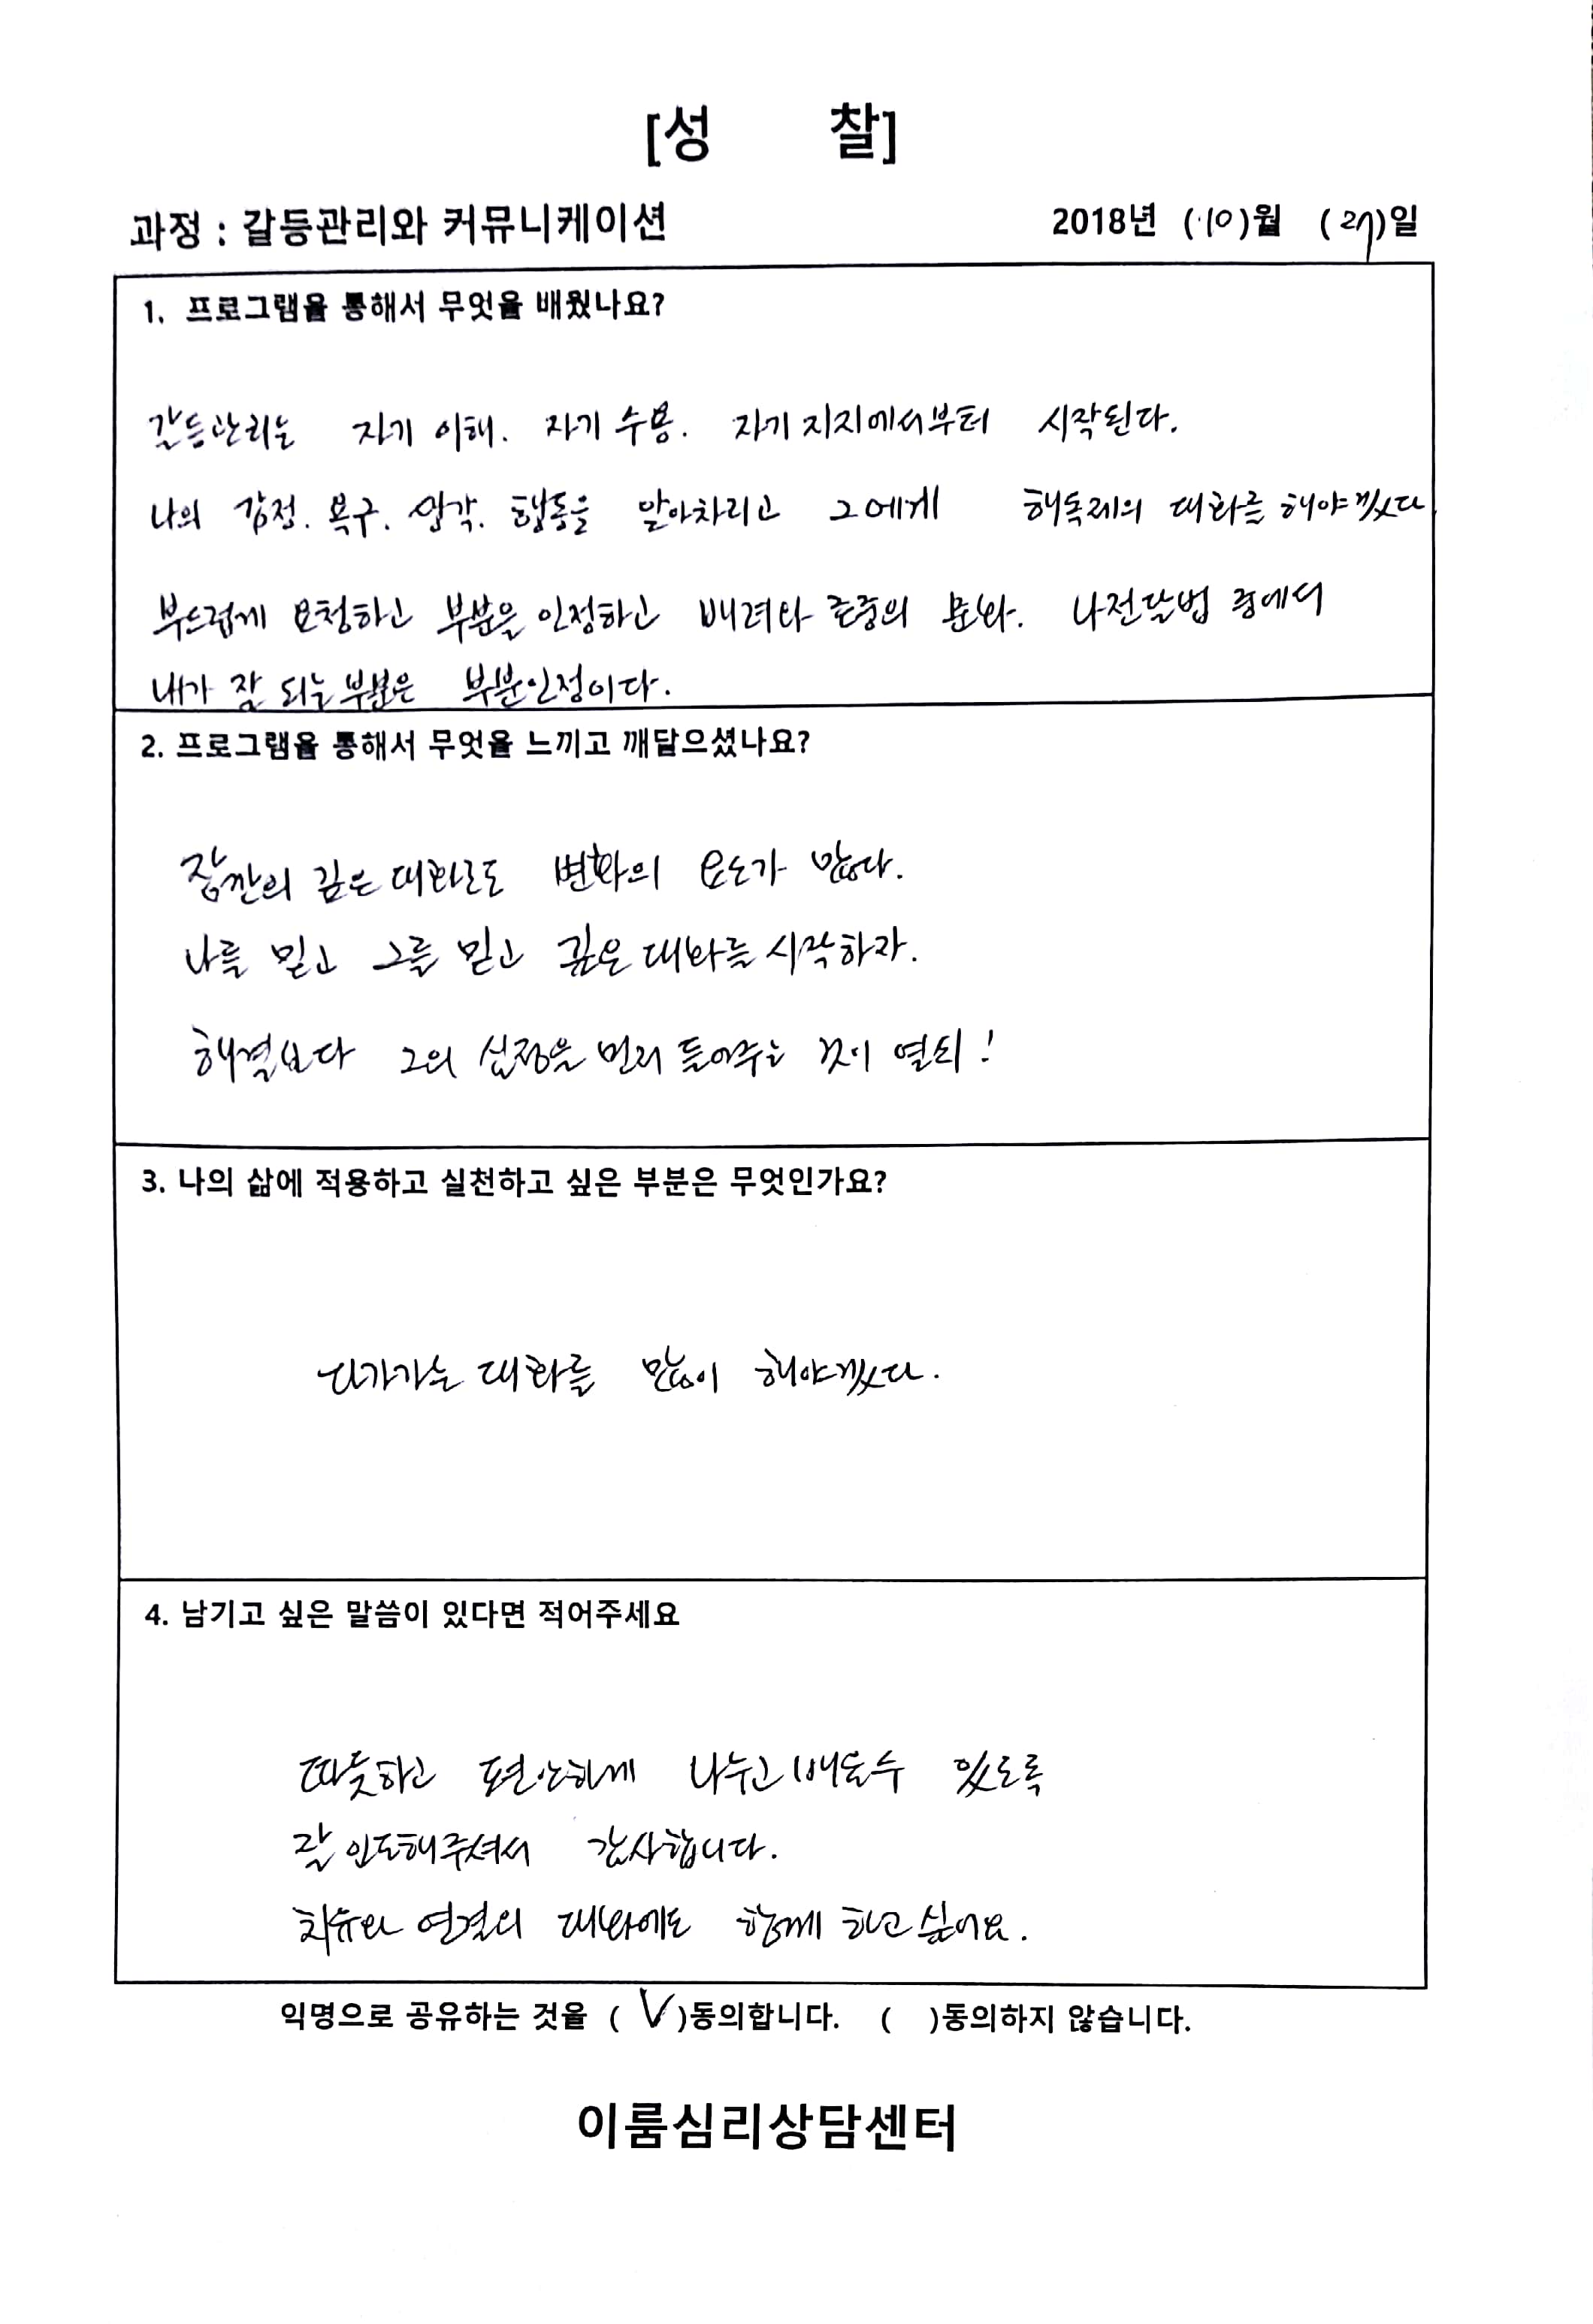 [성 찰]
과정 : 갈등관리와 커뮤니케이션 2018년 (10)월 (27)일
1. 프로그램을 통해서 무엇을 배웠나요?
갈등관리는 자기 이해. 자기 수용. 자기 지지에서부터 시작된다.
나의 감정. 욕구. 생각. 행동을 알아차리고 그에게 해독제의 대화를 해야겠다
부드럽게 요청하고 부분을 인정하고 배려와 존중의 문화. 나전달법 중에서
내가 잘 되는 부분은 부분인정이다.
2. 프로그램을 통해서 무엇을 느끼고 깨달으셨나요?
잠깐의 깊은 대화로도 변화의 요소가 많다.
나를 믿고 그를 믿고 깊은 대화를 시작하자.
해결보다 그의 심정을 먼저 들어주는 것이 열쇠!
3. 나의 삶에 적용하고 실천하고 싶은 부분은 무엇인가요?
다가가는 대화를 많이 해야겠다.
4. 남기고 싶은 말씀이 있다면 적어주세요
따듯하고 편안하게 나누고 배울수 있도록
잘 인도해주셔서 감사합니다.
치유와 연결의 대화에도 함께 하고싶어요.
익명으로 공유하는 것을 ( V )동의합니다. ( )동의하지 않습니다.
이룸심리상담센터